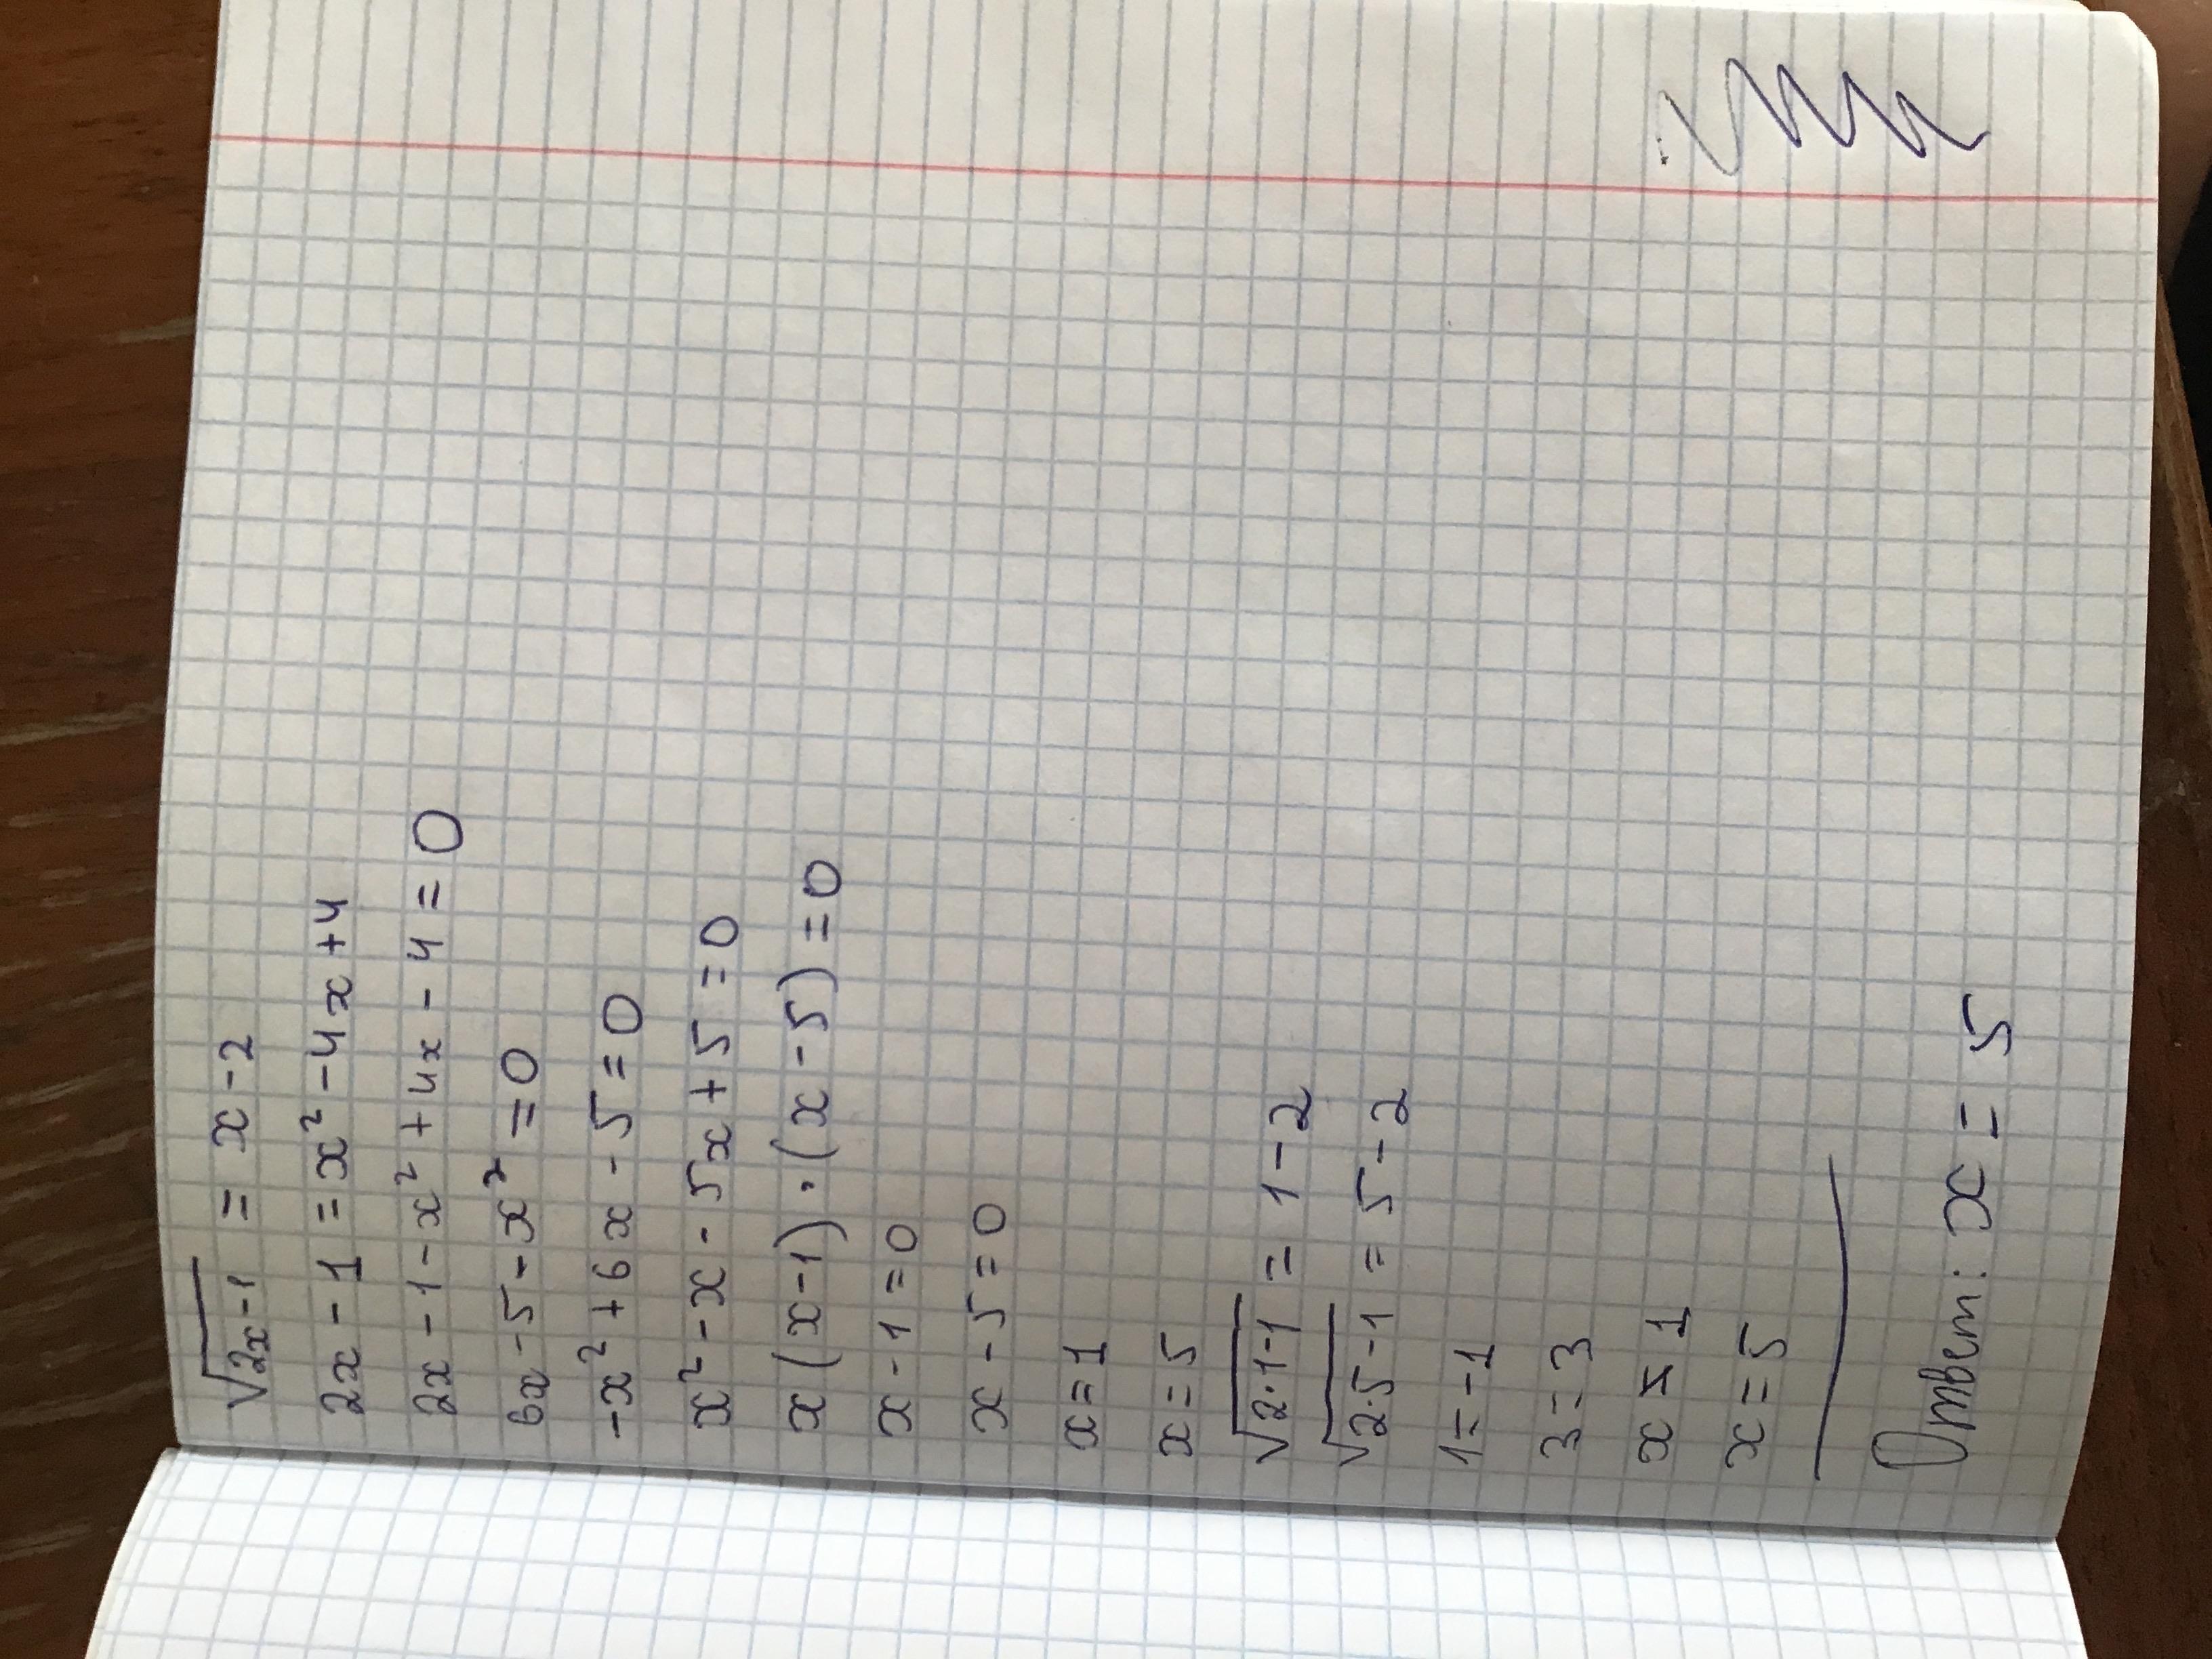 √2x-1 = x-2
2x-1=x²-4x+4
2x-1-x²+4x-4=0
6x-5-x²=0
-x²+6x-5=0
x²-x-5x+5=0
x(x-1)·(x-5)=0
x-1=0
x-5=0
x=1
x=5
√2·1-1=1-2
√2·5-1=5-2
1=-1
3=3
x≠1
x=5
Ответ: x=5